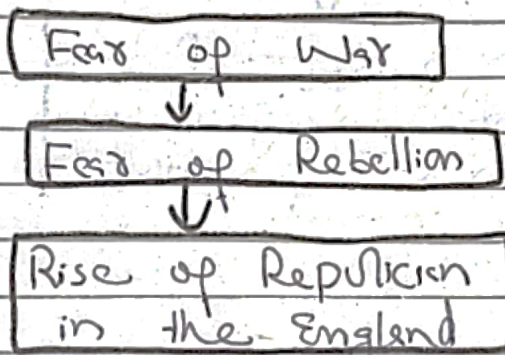 Fear of War
Fear of Rebellion
Rise of Republician
in the England